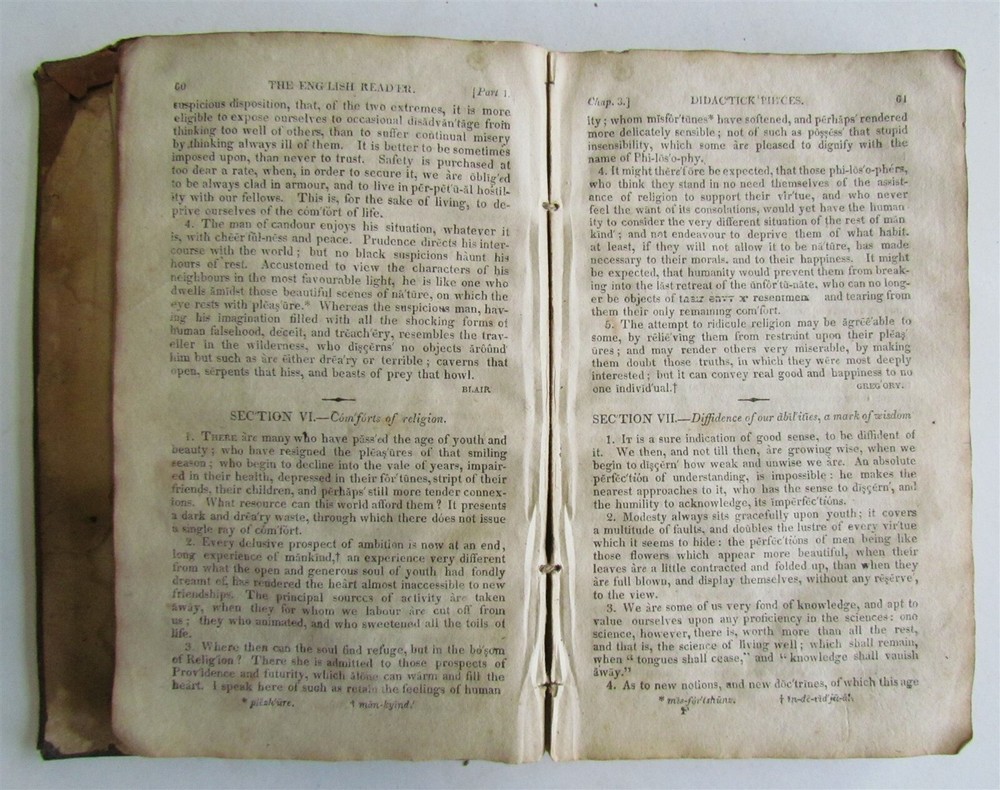 60 THE ENGLISH READER. [Part 1.
suspicious disposition, that, of the two extremes, it is more
eligible to expose ourselves to occasional disădvăn'tăge from
thinking too well of others, than to suffer continual misery
by thinking always ill of them. It is better to be sometimes
imposed upon, than never to trust. Safety is purchased at
too dear a rate, when, in order to secure it, we are ŏblīg'ed
to be always clad in armour, and to live in pĕr-pĕt'ū-ăl hostil-
ity with our fellows. This is, for the sake of living, to de-
prive ourselves of the cŏm'fŏrt of life.
4. The man of candour enjoys his situation, whatever it
is, with chēēr'fūl-nĕss and peace. Prudence dirĕcts his inter-
course with the world; but no black suspicions häunt his
hours of rest. Accustomed to view the characters of his
neighbours in the most favourable light, he is like one who
dwells ămīdst those beautiful scenes of nā'tūre, on which the
eye rests with plĕaş'ūre.* Whereas the suspicious man, hav-
ing his imagination filled with all the shocking forms of
human falsehood, dĕçēit, and trĕach'ĕry, resembles the trav-
eller in the wilderness, who dişçĕrns' no objects ărŏŭnd
him but such as are ēither drēa'ry or terrible; caverns that
open, serpents that hiss, and beasts of prey that howl.
BLAIR.
SECTION VI.—Cŏm'fŏrts of religion.
1. THERE are many who have păss'ed the age of youth and
beauty; who have resigned the plĕaş'ūres of that smiling
season; who begin to decline into the vale of years, impair-
ed in their health, depressed in their fŏr'tūnes, stript of their
friends, their children, and pĕrhăps' still more tender connex-
ions. What resource can this world afford them? It presents
a dark and drēa'ry waste, through which there dŏes not issue
a single ray of cŏm'fŏrt.
2. Every delusive prospect of ambition is now at an end,
long experience of mănkīnd,† an experience very different
from what the open and generous soul of youth had fondly
dreamt of, has rendered the heärt almost inaccessible to new
friendships. The principal sources of activity are taken
ăwāy, when they for whom we labour are cut off from
us; they who animated, and who sweetened all the toils of
life.
3. Where then can the soul find refuge, but in the bo'şom
of Religion? There she is admitted to those prospects of
Providence and futurity, which ălōne can warm and fill the
heärt. I speak here of such as retain the feelings of human
* plĕzh'ūre. † măn-kyīnd.'
Chap. 3.] DIDACTICK PIECES. 61
ity; whom mĭsfŏr'tūnes* have softened, and pĕrhăps' rendered
more delicately sensible; not of such as pŏşşĕss' that stupid
insensibility, which some are pleased to dignify with the
name of Phi-lŏs'o-phy.
4. It might thĕre'fōre be expected, that those phi-lŏs'o-phĕrs,
who think they stand in no need themselves of the assist-
ance of religion to support their vir'tue, and who never
feel the want of its consolations, would yet have the human
ity to consider the very different situation of the rest of măn
kīnd'; and not endeavour to deprive them of what habit.
at least, if they will not allow it to be nā'tūre, has made
necessary to their morals. and to their happiness. It might
be expected, that humanity would prevent them from break-
ing into the last retreat of the ŭnfŏr'tū-nāte, who can no long-
er be objects of their envy or resentment and tearing from
them their only remaining cŏm'fŏrt.
5. The attempt to ridicule religion may be ăgrēē'able to
some, by rēliē'ving them from restraint upon their plĕaş'
ūres; and may render others very miserable, by making
them doubt those truths, in which they wĕre most deeply
interested; but it can convey real good and happiness to no
one individ'ual.† GREG'ORY.
SECTION VII.—Diffidence of our ăbil'ities, a mark of wisdom
1. IT is a sure indication of good sense, to be diffident of
it. We then, and not till then, are growing wise, when we
begin to dişçĕrn' how weak and unwise we are. An absolute
pĕrfĕc'tiŏn of understanding, is impossible: he makes the
nearest approaches to it, who has the sense to dişçĕrn', and
the humility to acknowledge, its impĕrfĕc'tiŏns.
2. Modesty always sits gracefully upon youth; it covers
a multitude of faults, and doŭbles the lustre of every vir'tue
which it seems to hide: the pĕrfĕc'tiŏns of men being like
those flowers which appear more beautiful, when their
leaves are a little contracted and folded up, than when they
are full blown, and display themselves, without any rĕşĕrve',
to the view.
3. We are some of us very fond of knowledge, and apt to
value ourselves upon any proficiency in the sciences: one
science, however, there is, worth more than all the rest,
and that is, the science of living well; which shall remain,
when "tongues shall cease," and "knowledge shall vanish
ăwāy."
4. As to new notions, and new dŏc'trīnes, of which this age
* mĭs-fŏr'tshūnz. † ĭn-dē-vĭd'jū-ăl.
F